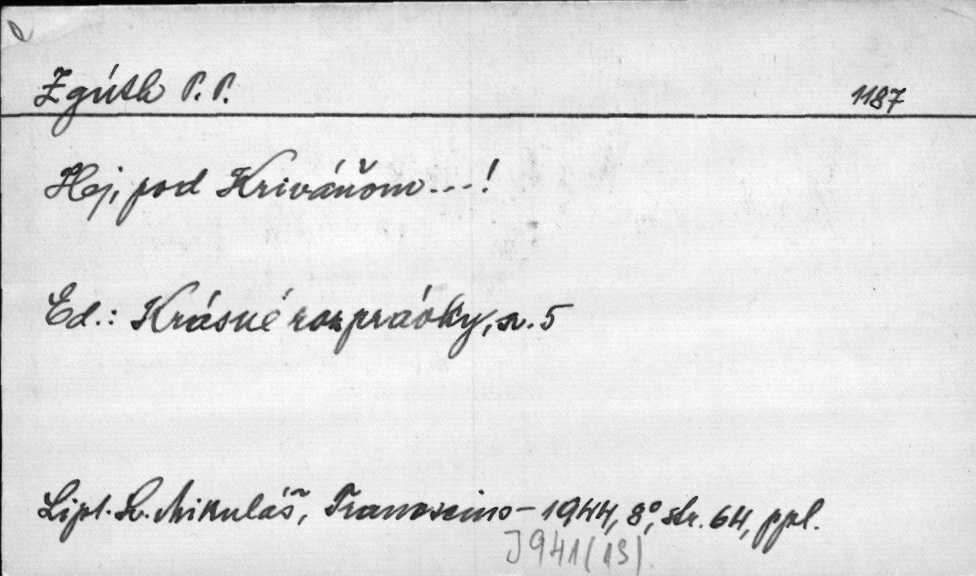 Zgúth P. P. 1187
Hej, pod Kriváňom...!
Ed.: Krásné rozprávky, sv. 5
Lipt. Sv. Mikuláš, Tranoscius - 1944, 8°, str. 64, ppl.
J941(13)